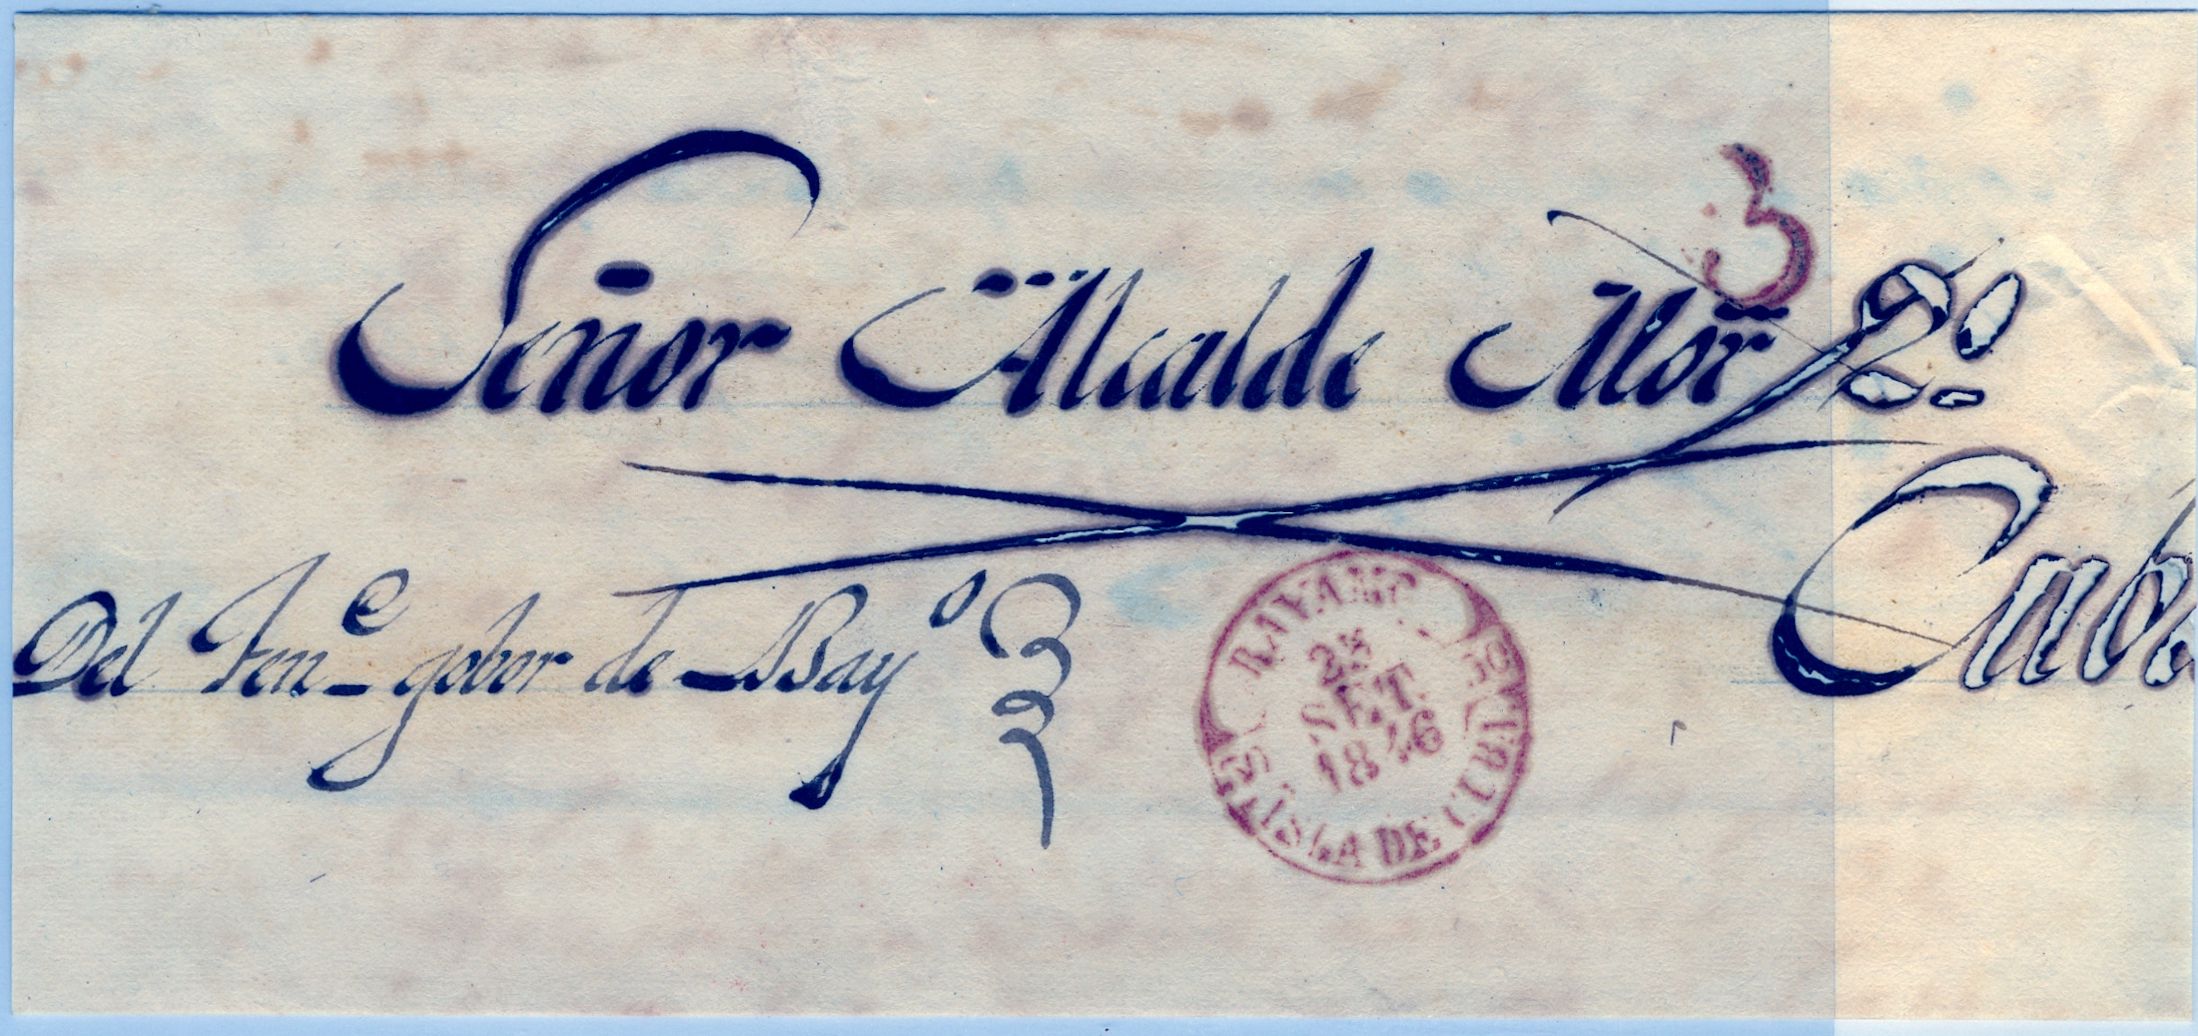 3
Señor Alcalde Mor 2.º
Cuba
Del Ten.e gobor de Bay.o
BAYAMO
SET.
1846
ISLA DE CUBA